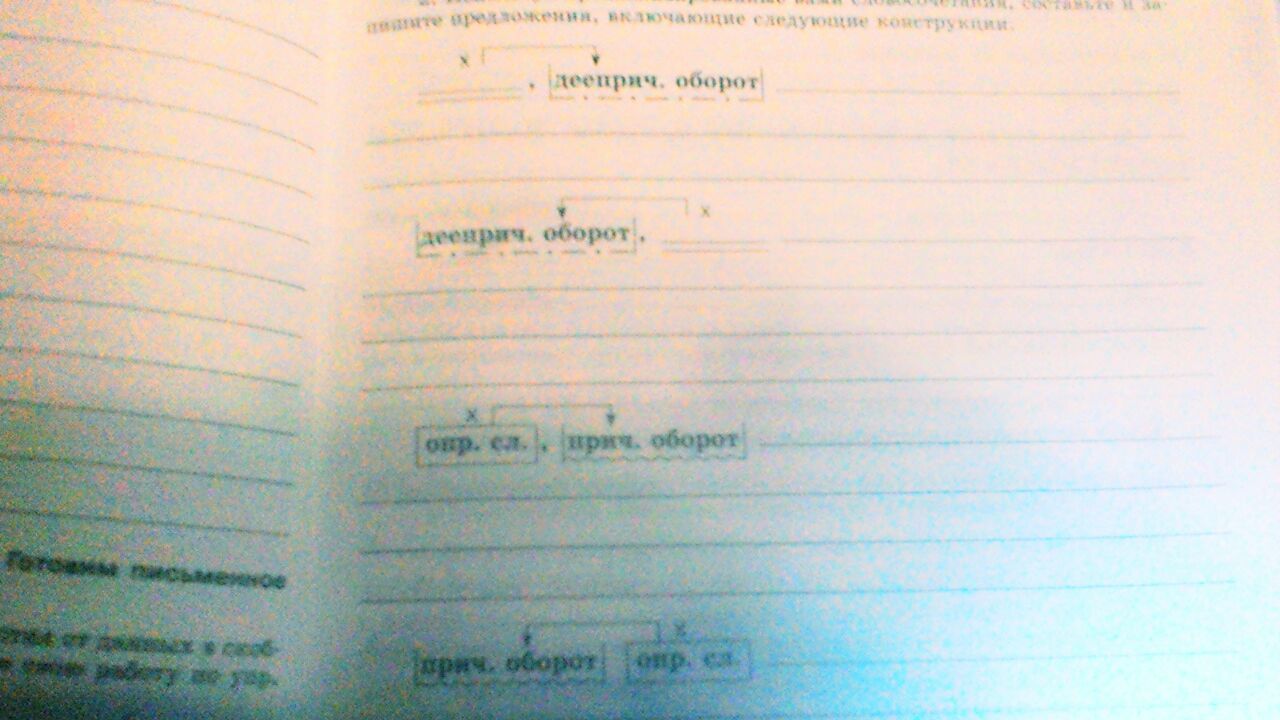 ванные вами словосочетания, составьте и за-
пишите предложения, включающие следующие конструкции.
х
, дееприч. оборот
х
дееприч. оборот,
х
опр. сл. , прич. оборот
х
прич. оборот опр. сл.
Готовим письменное
от данных в скоб-
свою работу по упр.